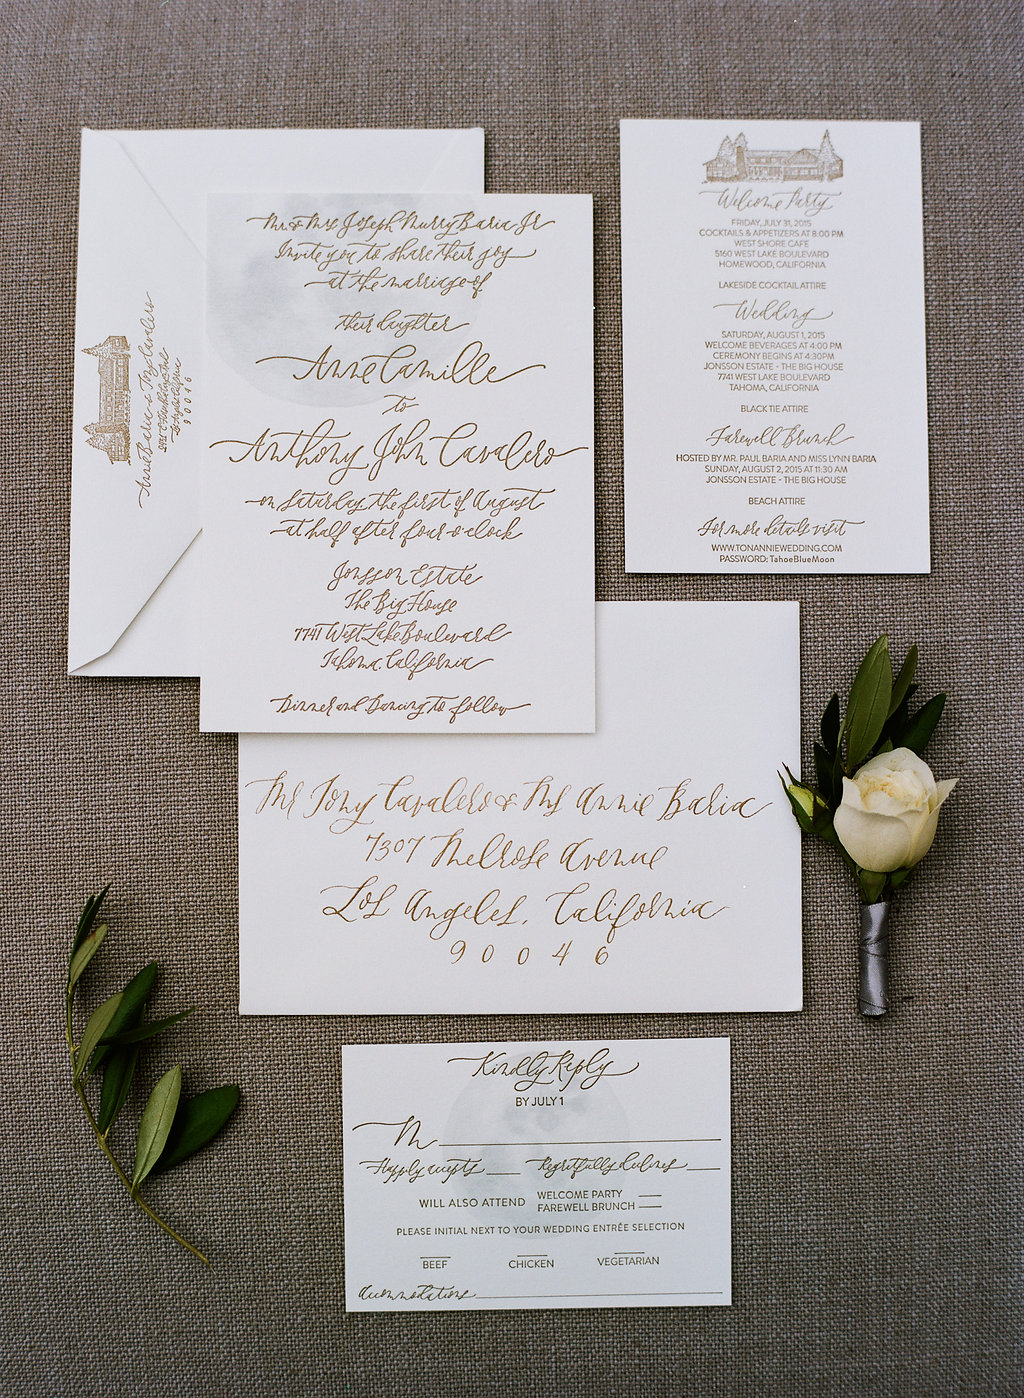 Mr & Mrs Joseph Murry Baria Jr
Invite you to share their joy
at the marriage of
their daughter
Anne Camille
to
Anthony John Cavalero
on Saturday, the first of August
at half after four o'clock
Jonsson Estate
The Big House
7741 West Lake Boulevard
Tahoma, California
Dinner and Dancing to follow
Welcome Party
FRIDAY, JULY 31, 2015
COCKTAILS & APPETIZERS AT 8:00 PM
WEST SHORE CAFE
5160 WEST LAKE BOULEVARD
HOMEWOOD, CALIFORNIA
LAKESIDE COCKTAIL ATTIRE
Wedding
SATURDAY, AUGUST 1, 2015
WELCOME BEVERAGES AT 4:00 PM
CEREMONY BEGINS AT 4:30PM
JONSSON ESTATE - THE BIG HOUSE
7741 WEST LAKE BOULEVARD
TAHOMA, CALIFORNIA
BLACK TIE ATTIRE
Farewell Brunch
HOSTED BY MR. PAUL BARIA AND MISS LYNN BARIA
SUNDAY, AUGUST 2, 2015 AT 11:30 AM
JONSSON ESTATE - THE BIG HOUSE
BEACH ATTIRE
For more details visit
WWW.TONANNIEWEDDING.COM
PASSWORD: TahoeBlueMoon
Annie Baria & Tony Cavalero
Los Angeles, California
90046
Mr Tony Cavalero & Ms Annie Baria
7307 Melrose Avenue
Los Angeles, California
90046
Kindly Reply
BY JULY 1
M
Happily accepts Regretfully declines
WILL ALSO ATTEND WELCOME PARTY
FAREWELL BRUNCH
PLEASE INITIAL NEXT TO YOUR WEDDING ENTRÉE SELECTION
BEEF CHICKEN VEGETARIAN
Accommodations